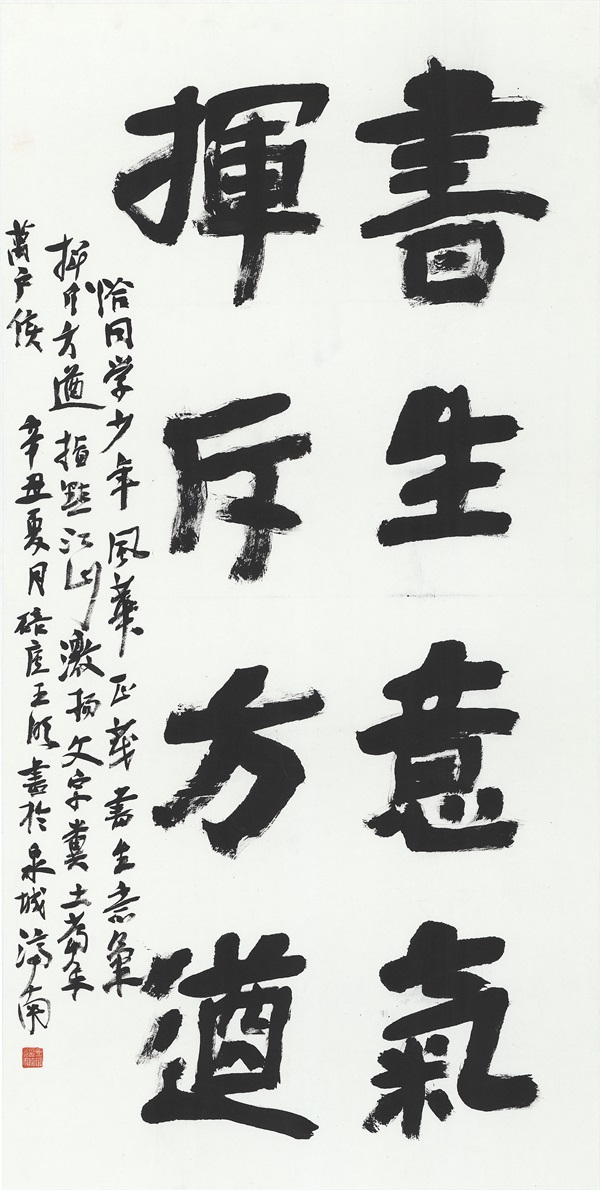 書生意氣
揮斥方遒
恰同学少年風華正茂書生意氣
揮斥方遒指點江山激揚文字糞土當年
萬户侯 辛丑夏月 王 書於泉城濟南